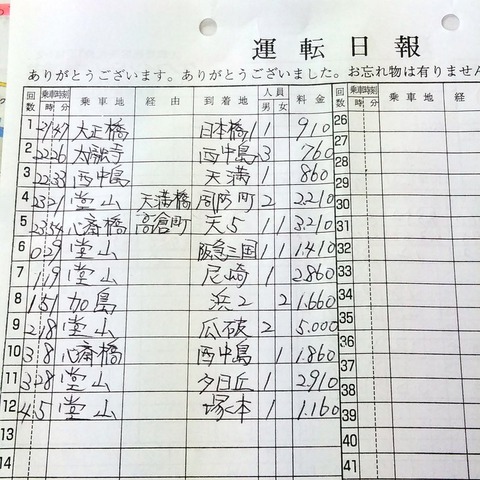 運転日報
ありがとうございます。ありがとうございました。お忘れ物は有りません
回数 乗車時刻 時 分 乗車地 経由 到着地 人員 男 女 料金 回数 乗車時刻 時 分 乗車地 経
1 21 47 大正橋 日本橋1 1 910 26
2 22 26 大融寺 西中島 3 760
3 22 33 西中島 天満 1 860
4 23 21 堂山 天満橋 周防町 2 2.210 30
5 23 54 心斎橋 高倉町 天5 1 1 3.210 31
6 0 29 堂山 阪急三国 1 1 1.410 32
7 1 19 堂山 尼崎 1 2.860 33
8 1 51 加島 浜2 2 1.660 34
9 2 18 堂山 瓜破 2 5.000 35
10 3 8 心斎橋 西中島 1 1.860 36
11 3 28 堂山 夕日丘 1 2910 38
12 4 5 堂山 塚本 1 1.160 39
13 40
14 41